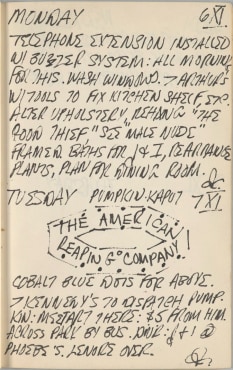 MONDAY 6 XI
TELEPHONE EXTENSION INSTALLED
W/ BUZZER SYSTEM: ALL MORNING
FOR THIS. WASH WINDOWS. 7 ARTHUR
W/ TOOLS TO FIX KITCHEN SHELF ETC.
ALTER UPHOLSTERY, REHANG "THE
GOOD THIEF" "SEE MALE NUDE"
FRAMED BATHS FOR J & I, REARRANGE
PLANTS, PLAN FOR DINING ROOM.
TUESDAY PUMPKIN KAPUT 7 XI
THE AMERICAN
REAPING COMPANY!
COBALT BLUE DOTS FOR ABOVE.
7 KENNENY'S TO DISPATCH PUMP-
KIN: MSTART THERE: &5 FROM HIM.
ACROSS PARK BY BUS. DNR: J & I @
PHOEBE'S. LENORE OVER.